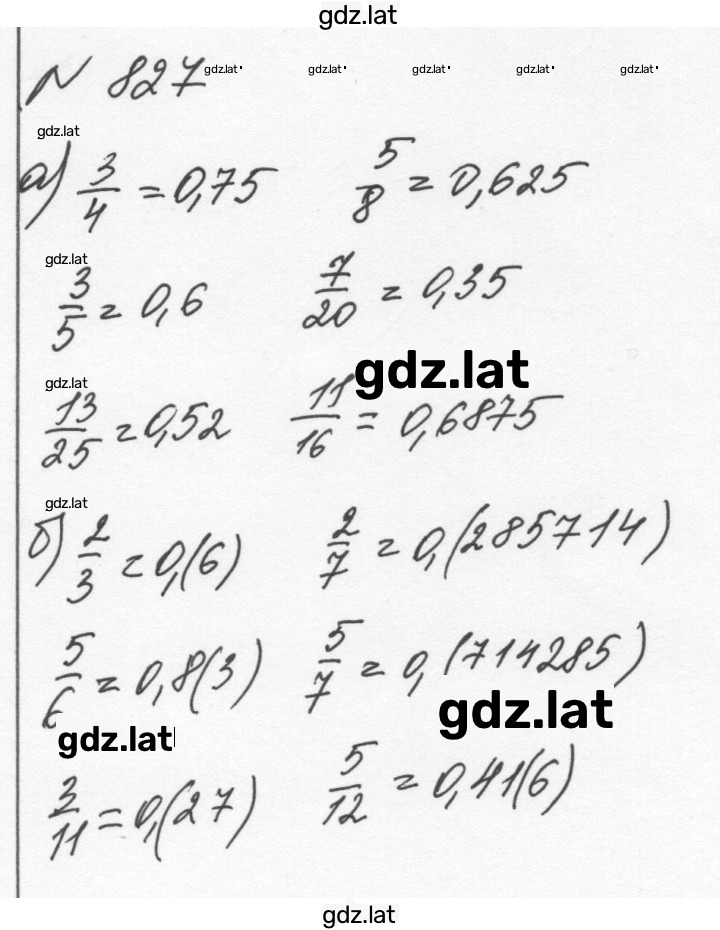 gdz.lat
N 827
gdz.lat gdz.lat gdz.lat gdz.lat gdz.lat
gdz.lat
а) 3/4 = 0,75 5/8 = 0,625
gdz.lat
3/5 = 0,6 7/20 = 0,35
gdz.lat
gdz.lat
13/25 = 0,52 11/16 = 0,6875
gdz.lat
б) 2/3 = 0,(6) 2/7 = 0,(285714)
5/6 = 0,8(3) 5/7 = 0,(714285)
gdz.lat
gdz.lat
3/11 = 0,(27) 5/12 = 0,41(6)
gdz.lat